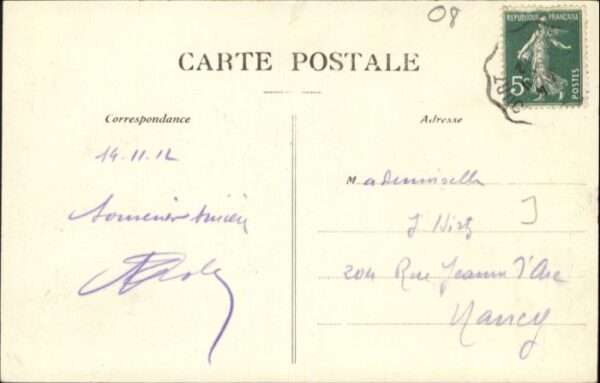 08
RÉPUBLIQUE FRANÇAISE
5c
POSTES
CARTE POSTALE
Correspondance
Adresse
14.11.12
Mademoiselle
Souvenir sincère
J
204 Rue Jeanne d'Arc
Nancy